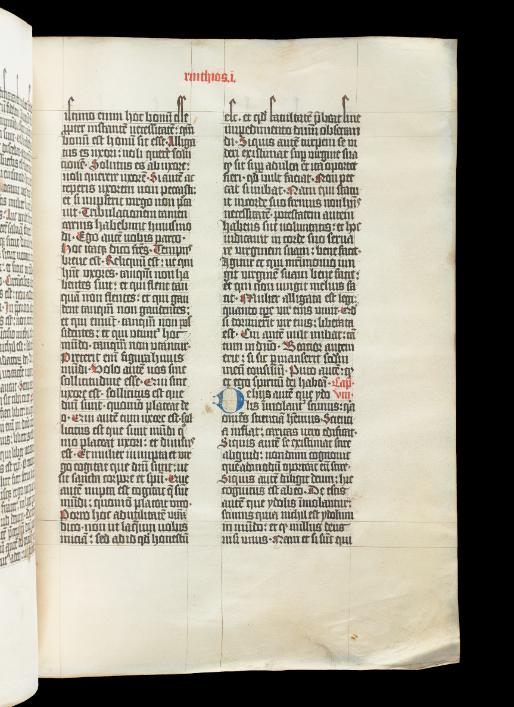 rinthios.i.
stimo enim hoc bonū esse
ꝓpter instantē necessitatē: qm̄
bonū est homī sic esse. Alliga
tus es uxori: noli querē solu
tionē. Solutus es ab uxore:
noli querere uxorē. Si autē ac
ceperis uxorem non peccasti:
et si nupserit uirgo non pec
cauit. Tribulationem tamen
carnis habebunt huiusmo
di. Ego autē uobis parco.
Hoc itaq; dico frēs. Tempus
breue est. Reliquū est: ut et qui
hn̄t uxores: tanquā non ha
bentes sint: et qui flent tan
quā non flentes: et qui gau
dent tanquā non gaudentes:
et qui emūt tanquā non pos
sidentes: et qui utunt̄ hoc
mūdo: tanquā non utantur.
Preterit enī figura huius
mūdi. Volo autē uos sine
sollicitudine esse. Qui sine
uxore est: sollicitus est que
dn̄i sunt: quomō placeat de
o. Qui autē cum uxore est: sol
licitus est que sunt mūdi: q̄
mō placeat uxori: et diuisus
est. Et mulier innupta et uir
go cogitat que dn̄i sunt: ut
sit sancta corpore et spū. Que
autē nupta est cogitat q̄ sūt
mūdi: quomō placeat uiro.
Porro hoc ad utilitatē urām
dico: non ut laqueū uobis
iniciā: sed ad id qd̄ honestū
est: et qd̄ facultatē p̄beat sine
impedimento dn̄um obseruan
di. Siquis autē turpem se ui
deri existimat sup uirgine sua
q̄ sit sup adulta et ita oportet
fieri: qd̄ uult faciat. Non pec
cat si nubat. Nam qui statu
it in corde suo firmus non hn̄s
necessitatē: potestatem autem
habens sue uoluntatis: et hoc
iudicauit in corde suo serua
re uirginem suam: bene facit.
Igitur et qui mrimonio iun
git uirginē suam bene facit:
et qui non iungit melius fa
cit. Mulier alligata est legi:
quanto tpr̄e uir eius uiuit. Qd̄
si dormierit uir eius: liberata
est. Cui autē uult nubat: tā
tum in dn̄o. Beatior autem
erit: si sic permanserit scd̄m
meū consiliū. Puto autē: q̄
et ego spiritū dei habeā. Cap.
De hiis autē que ydo viij.
lis imolant̄ scimus: quia
omn̄es scientiā hēmus. Scienti
a inflat: caritas uero edificat.
Siquis autē se existimat scire
aliquid: nondum cognouit
quēadmodū oporteat eū scire.
Siquis autē diligit deum: hic
cognitus est ab eo. De escis
autē que ydolis imolantur:
scimus quia nichil est ydolum
in mūdo: et q̄ nullus deus
nisi unus. Nam et si sūt qui